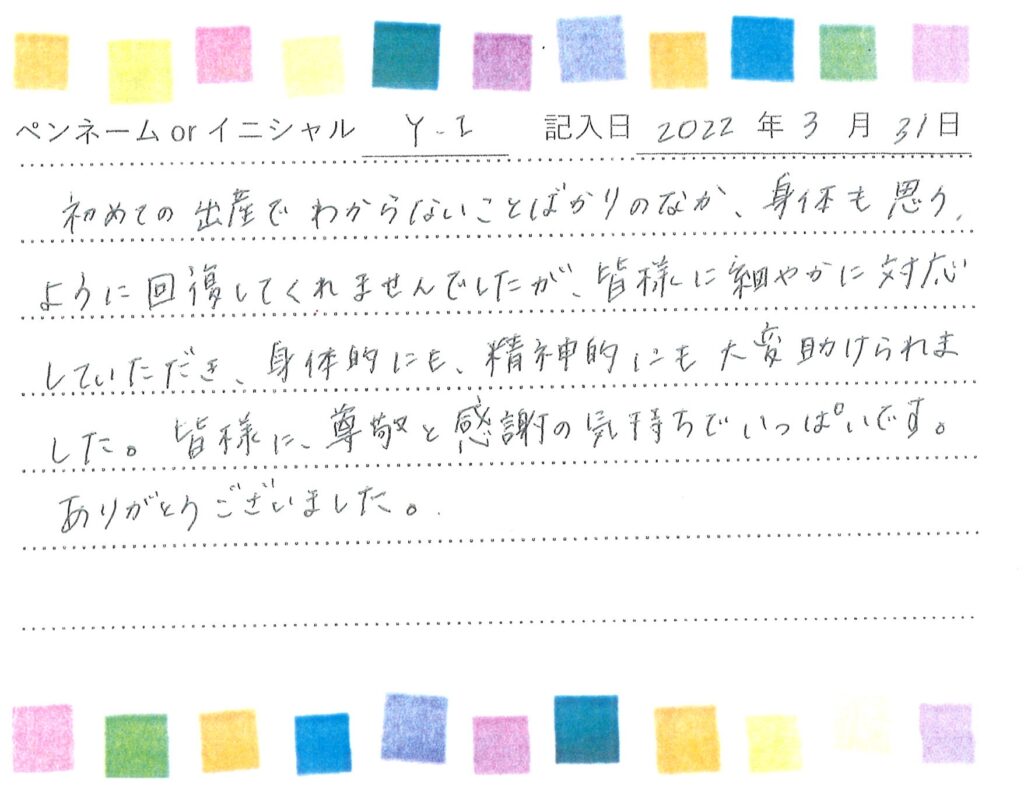 ペンネームorイニシャル Y.I 記入日 2022 年 3 月 31日
初めての出産でわからないことばかりのなか、身体も思う
ように回復してくれませんでしたが、皆様に細やかに対応
していただき、身体的にも、精神的にも大変助けられま
した。皆様に、尊敬と感謝の気持ちでいっぱいです。
ありがとうございました。